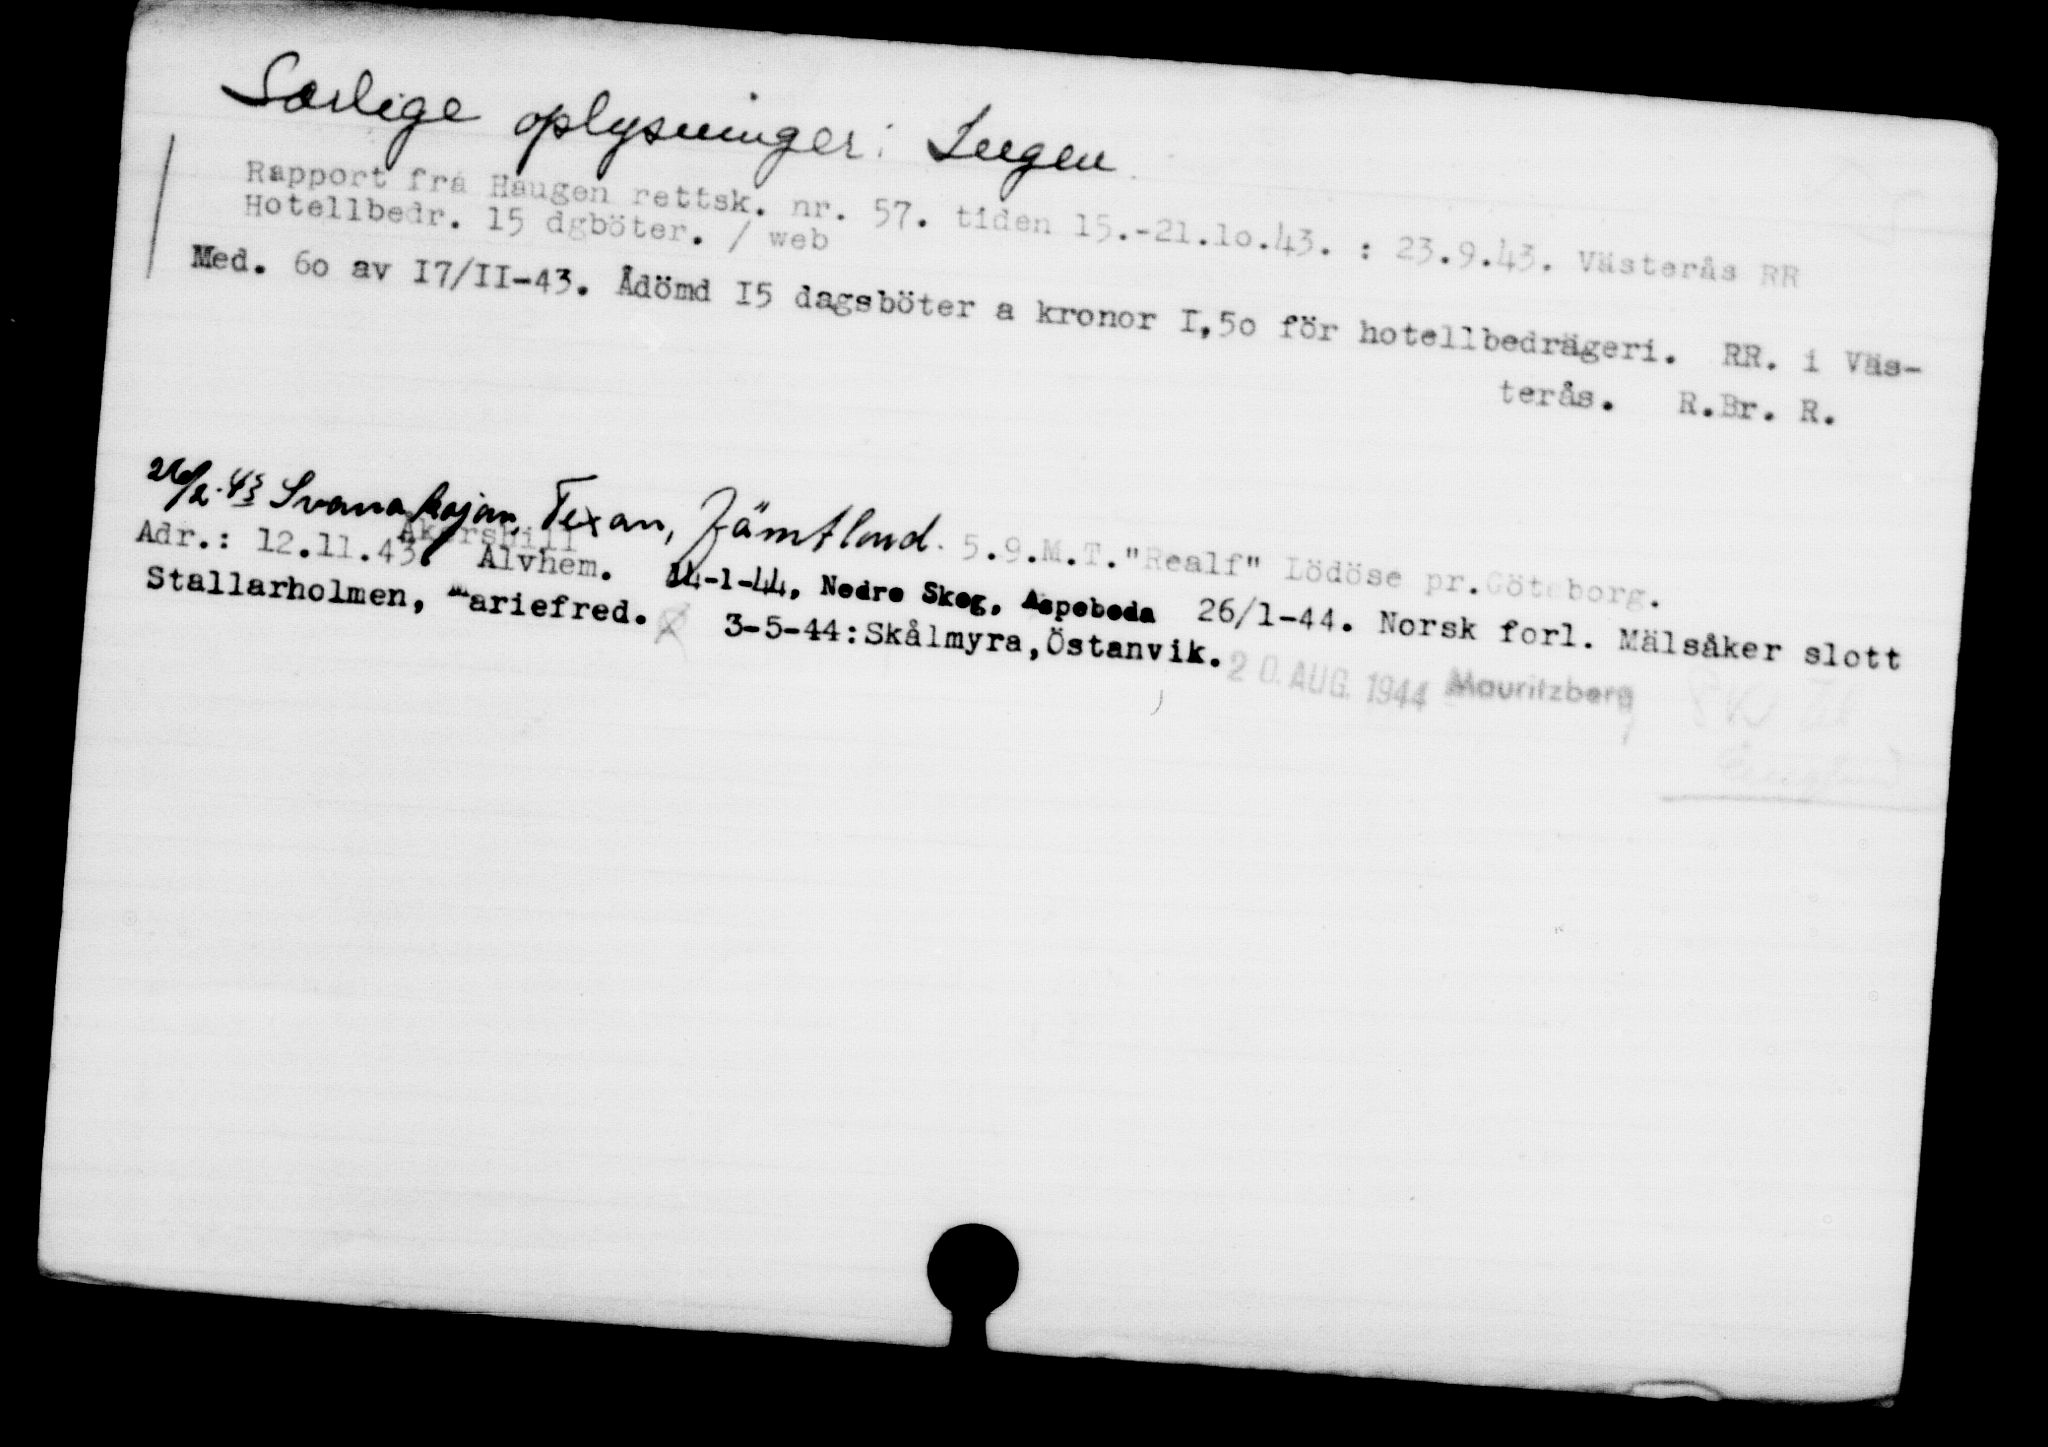 Særlige oplysninger: Ingen.
Rapport fra Haugen rettsk. nr. 57. tiden 15.-21.10.43. : 23.9.43. Västerås RR
Hotellbedr. 15 dgböter. / web
Med. 60 av I7/II-43. Ådömd I5 dagsböter a kronor I,5o för hotellbedrägeri. RR. i Väs-
terås. R.Br. R.
Texan, Jämtland. 5.9.M.T."Realf" Lödöse pr.Göteborg.
Adr.: 12.11.43. Alvhem. 14-1-44, Nedre Skog, Aspeboda 26/1-44. Norsk forl. Mälsåker slott
Stallarholmen, Mariefred. 3-5-44:Skålmyra,Östanvik. 20. AUG. 1944 Mauritzberg